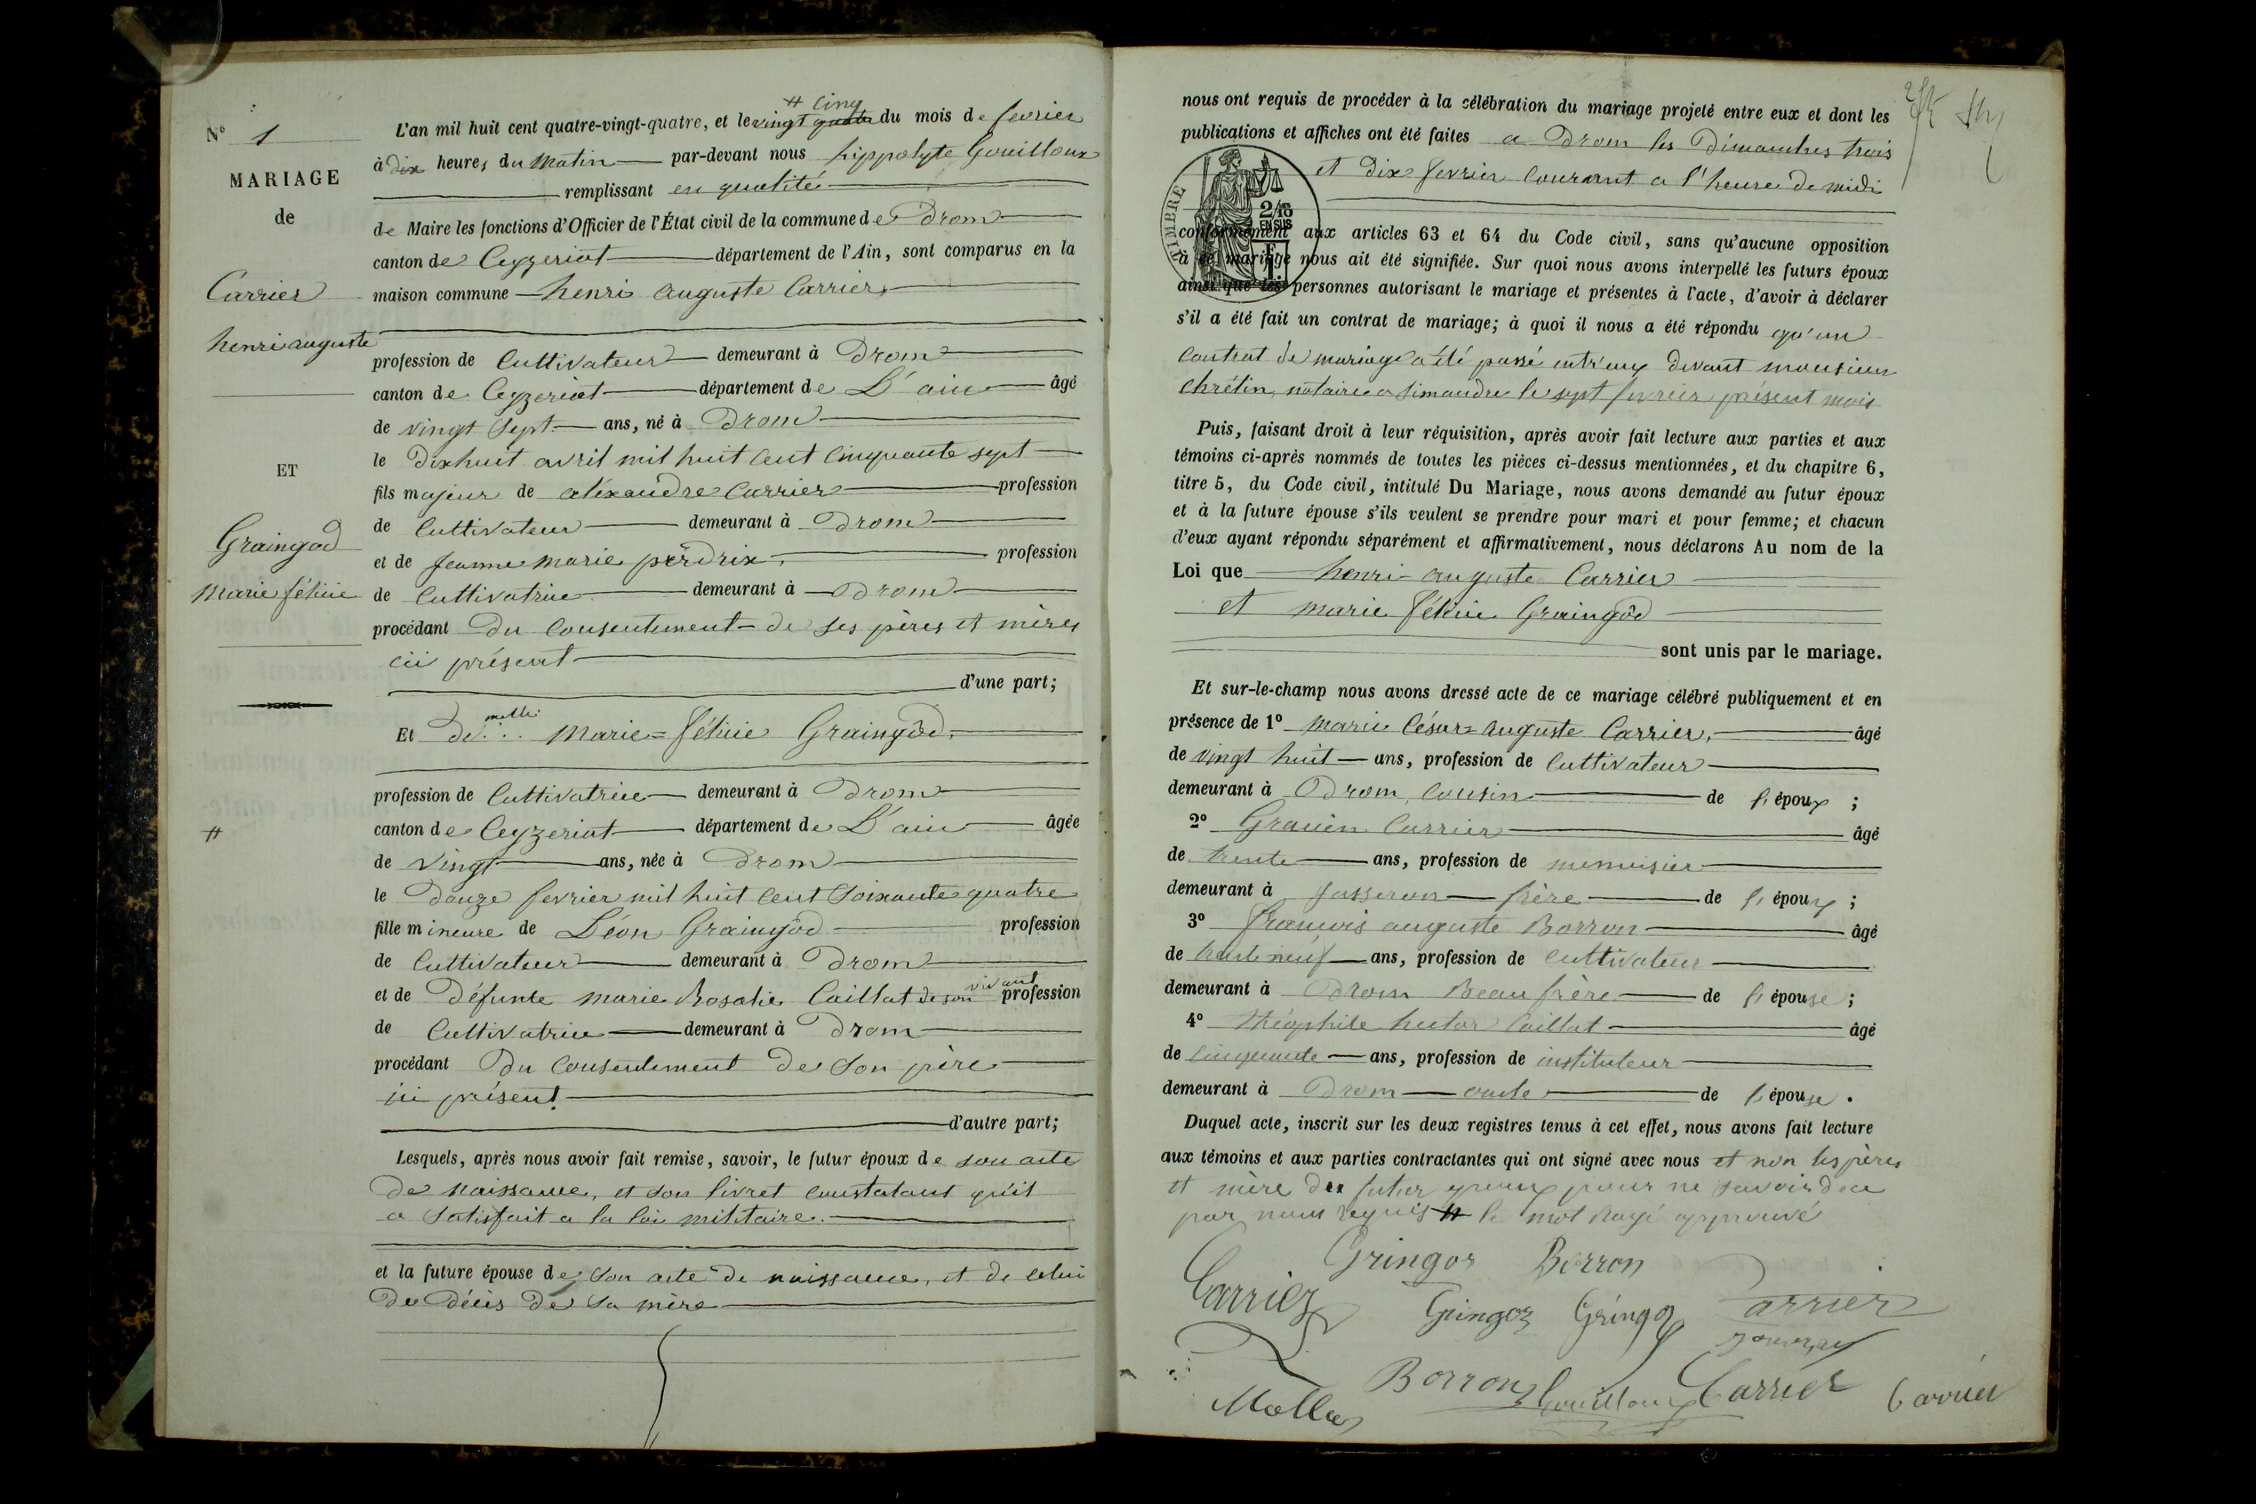 N° 1
MARIAGE
de
Carrier
henri auguste
ET
Graingod
Marie félicie
#
# cinq
L'an mil huit cent quatre-vingt-quatre, et le vingt quatre du mois de fevrier
à dix heures du matin par-devant nous hippolyte Gouilloux
remplissant en qualité
de Maire les fonctions d'Officier de l'État civil de la commune de Drom
canton de Ceyzeriat département de l'Ain, sont comparus en la
maison commune henri auguste Carrier,
profession de Cultivateur demeurant à Drom
canton de Ceyzeriat département de L'ain âgé
de vingt Sept ans, né à Drom
le Dixhuit avril mil huit cent cinquante sept
fils majeur de aléxandre Carrier profession
de Cultivateur demeurant à Drom
et de Jeanne marie perdrix, profession
de Cultivatrice demeurant à Drom
procédant Du Consentement de ses pères et mères
ici présent
d'une part;
Et de melle Marie = félicie Graingod,
profession de Cultivatrice demeurant à Drom
canton de Ceyzeriat département de L'ain âgée
de vingt ans, née à Drom
le Douze fevrier mil huit cent Soixante quatre
fille mineure de Léon Graingod profession
de Cultivateur demeurant à Drom
et de Défunte marie Rosalie Caillat de son vivant profession
de Cultivatrice demeurant à Drom
procédant Du Consentement De Son père
ici présent
d'autre part;
Lesquels, après nous avoir fait remise, savoir, le futur époux de son acte
De naissance, et son livret constatant qu'il
a satisfait a la loi militaire.
et la future épouse de son acte de naissance, et de celui
De Décès De Sa mère
nous ont requis de procéder à la célébration du mariage projeté entre eux et dont les
publications et affiches ont été faites a Drom les Dimanches trois
et dix fevrier courant a l'heure de midi
TIMBRE
2/10
EN SUS
conformément aux articles 63 et 64 du Code civil, sans qu'aucune opposition
à ce mariage nous ait été signifiée. Sur quoi nous avons interpellé les futurs époux
ainsi que les personnes autorisant le mariage et présentes à l'acte, d'avoir à déclarer
s'il a été fait un contrat de mariage; à quoi il nous a été répondu qu'un
Contrat de mariage a été passé entr'eux devant monsieur
chrétin, notaire a Simandre le sept fevrier présent mois
Puis, faisant droit à leur réquisition, après avoir fait lecture aux parties et aux
témoins ci-après nommés de toutes les pièces ci-dessus mentionnées, et du chapitre 6,
titre 5, du Code civil, intitulé Du Mariage, nous avons demandé au futur époux
et à la future épouse s'ils veulent se prendre pour mari et pour femme; et chacun
d'eux ayant répondu séparément et affirmativement, nous déclarons Au nom de la
Loi que henri auguste Carrier
et marie félicie Graingod
sont unis par le mariage.
Et sur-le-champ nous avons dressé acte de ce mariage célébré publiquement et en
présence de 1° marie César = auguste Carrier, âgé
de vingt huit ans, profession de Cultivateur
demeurant à Drom, cousin de l'époux ;
2° Carrier âgé
de trente ans, profession de menuisier
demeurant à Jasseron frère de l'époux ;
3° françois auguste Borron âgé
de trente neuf ans, profession de cultivateur
demeurant à Drom Beau frère de l'épouse ;
4° théophile hector Caillat âgé
de cinquante ans, profession de instituteur
demeurant à Drom oncle de l'épouse .
Duquel acte, inscrit sur les deux registres tenus à cet effet, nous avons fait lecture
aux témoins et aux parties contractantes qui ont signé avec nous et non les pères
et mère du futur epoux pour ne savoir de ce
par nous requis # le mot rayé approuvé
Gringoz Borron
Carriez Gringoz Gringoz Carrier
Borron Gouilloux Carrier Carrier